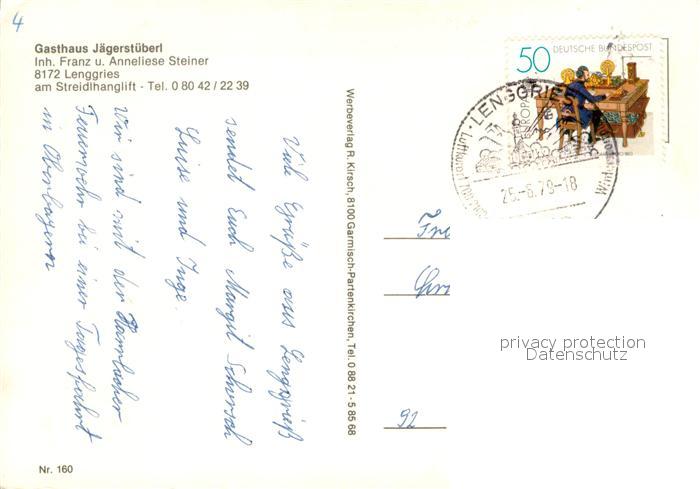 4
Gasthaus Jägerstüberl
Inh. Franz u. Anneliese Steiner
8172 Lenggries
am Streidlhanglift - Tel. 0 80 42 / 22 39
50 DEUTSCHE BUNDESPOST
EUROPA
LENGGRIES
25.-6.79-18
Viele Grüße aus Lenggrieß
sendet Euch Margit Schorsch
Luise und Inge.
Wir sind mit der
Feuerwehr bei einer Tagesfahrt
in Oberbayern
Werbeverlag R. Kirsch, 8100 Garmisch-Partenkirchen, Tel. 0 88 21 - 5 85 68
92
privacy protection
Datenschutz
Nr. 160